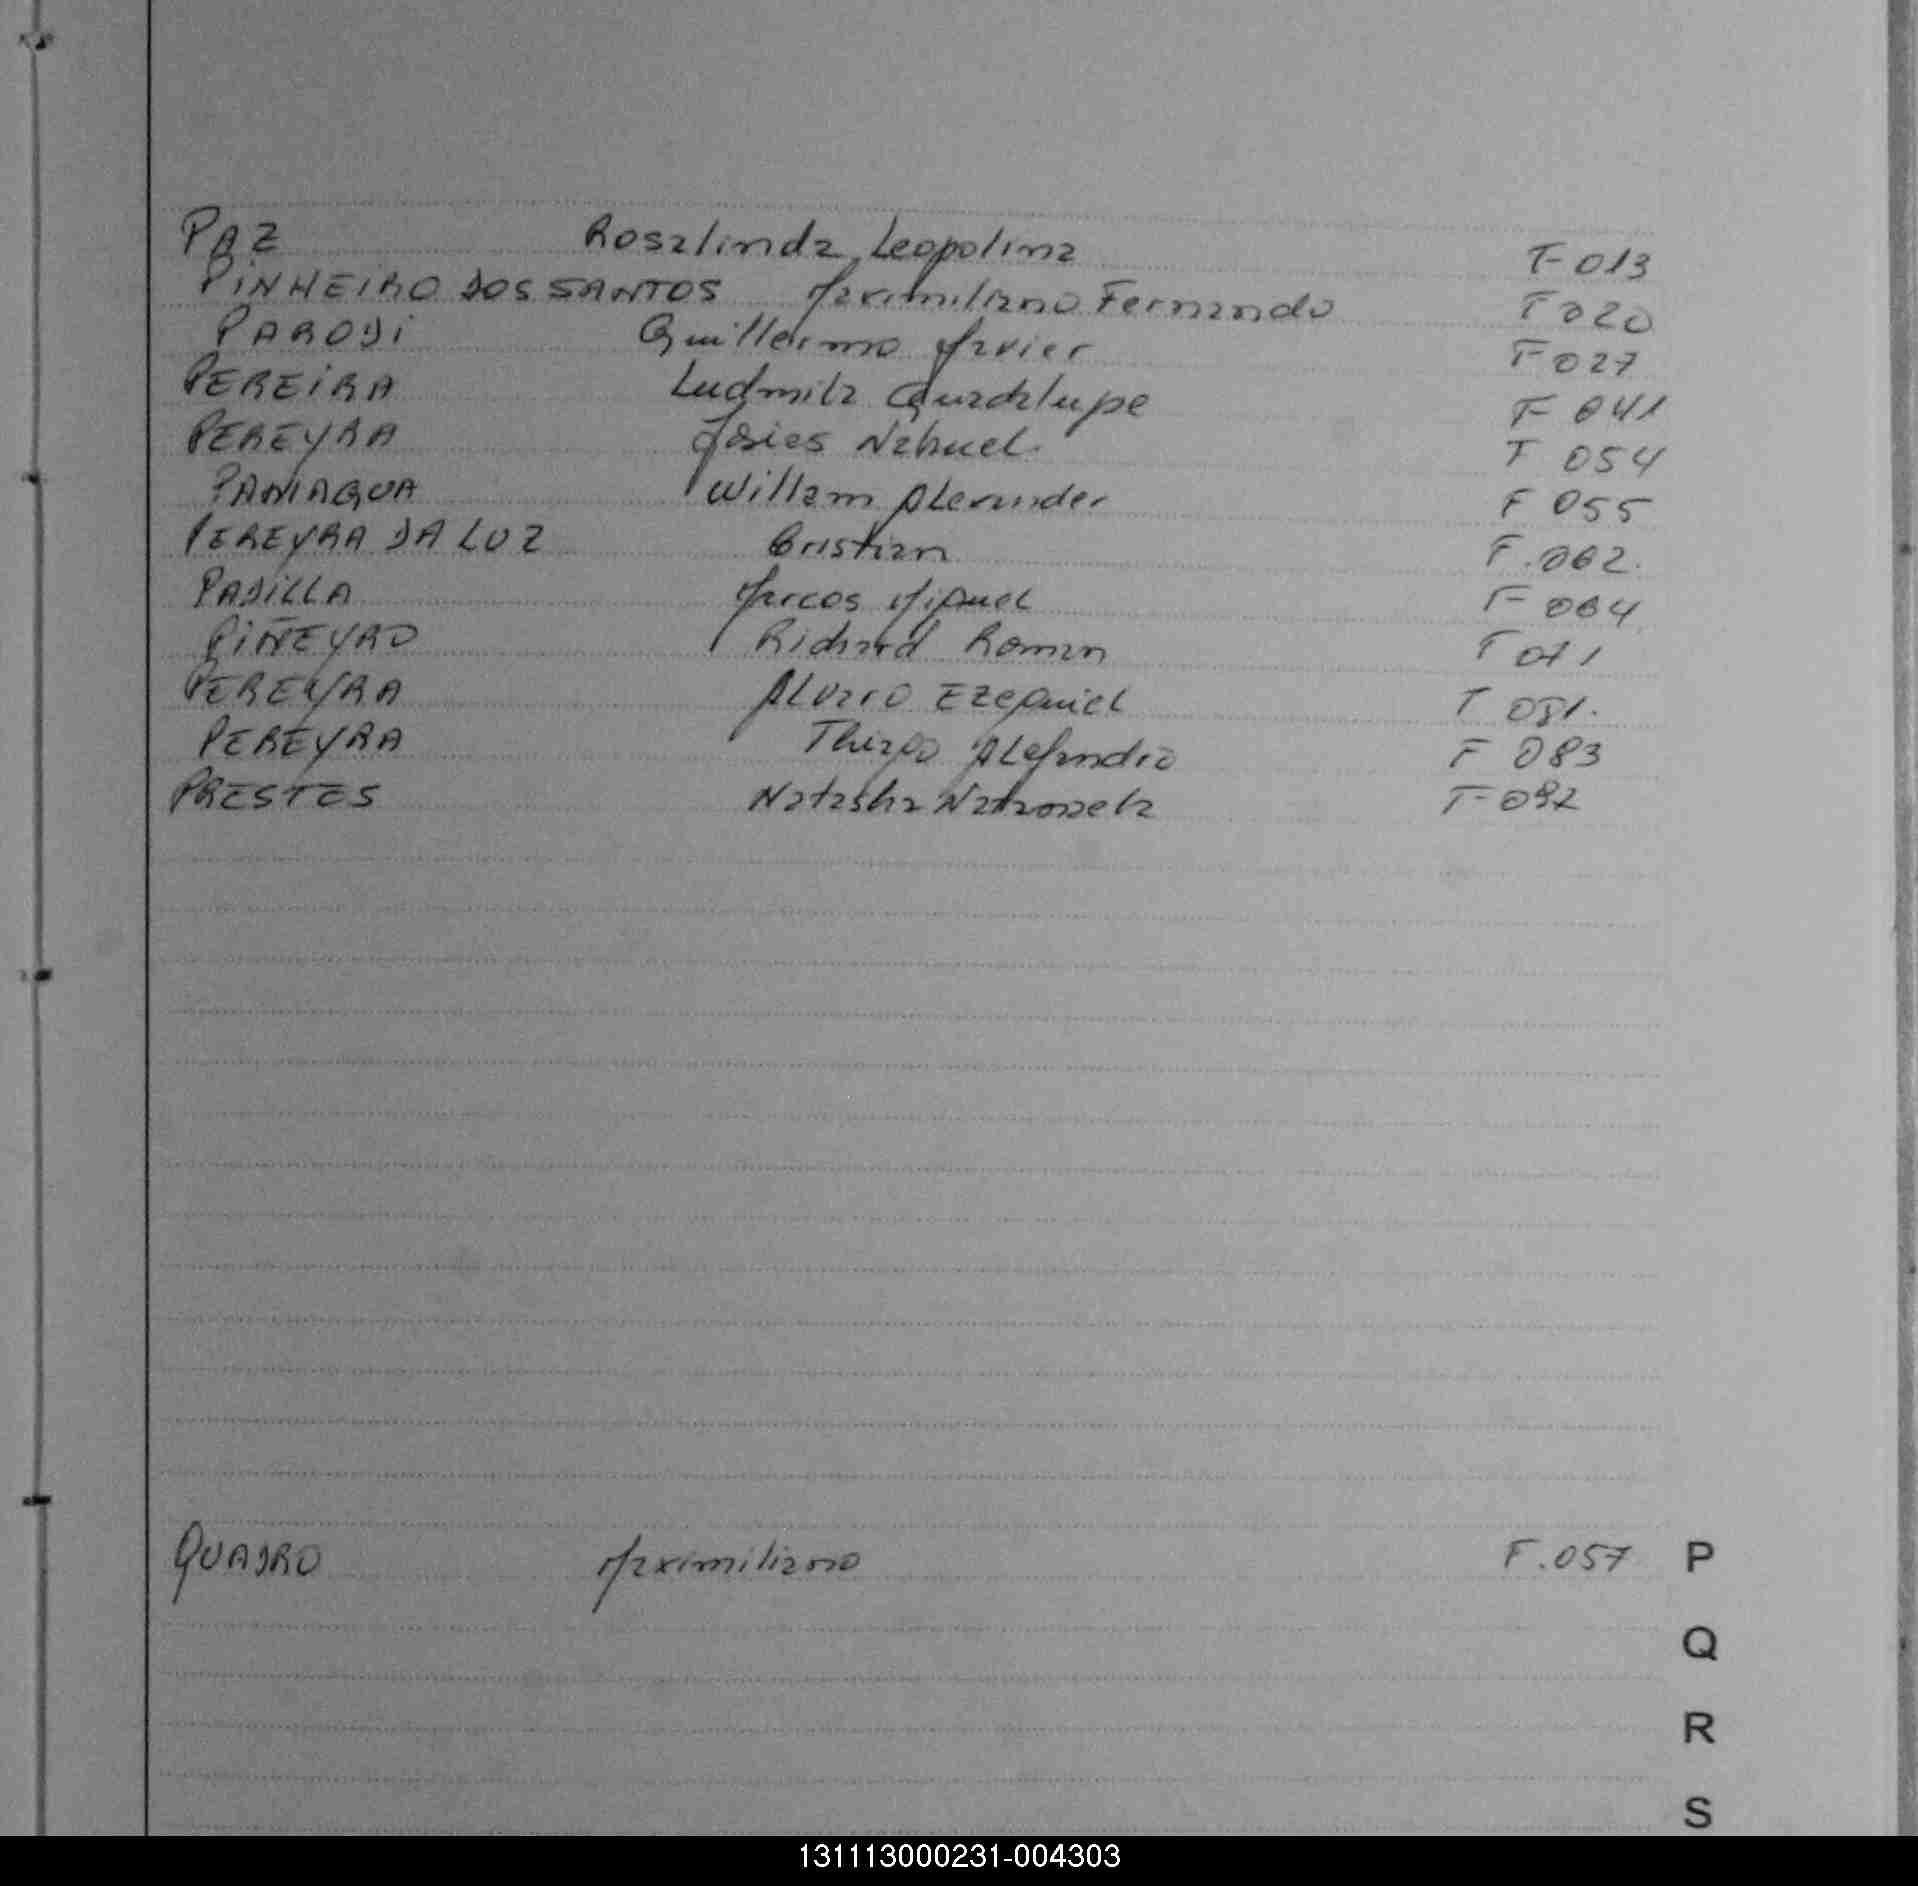 PAZ Rosalinda Leopolina F 013
PINHEIRO DOS SANTOS Maximiliano Fernando F 020
PARODI Guillermo Javier F 027
PEREIRA Ludmila Guadalupe F 041
PEREYRA Nahuel F 054
PANIAGUA Willam Alexander F 055
PEREYRA DA LUZ Cristian F.062.
PADILLA Marcos Miguel F 064
PIÑEYRO Richard Roman F 071
PEREYRA Alvaro Ezequiel F 081.
PEREYRA Thiago Alejandro F 083
PRESTES Natasha F 092
QUADRO Maximiliano F.057 P
Q
R
S
131113000231-004303